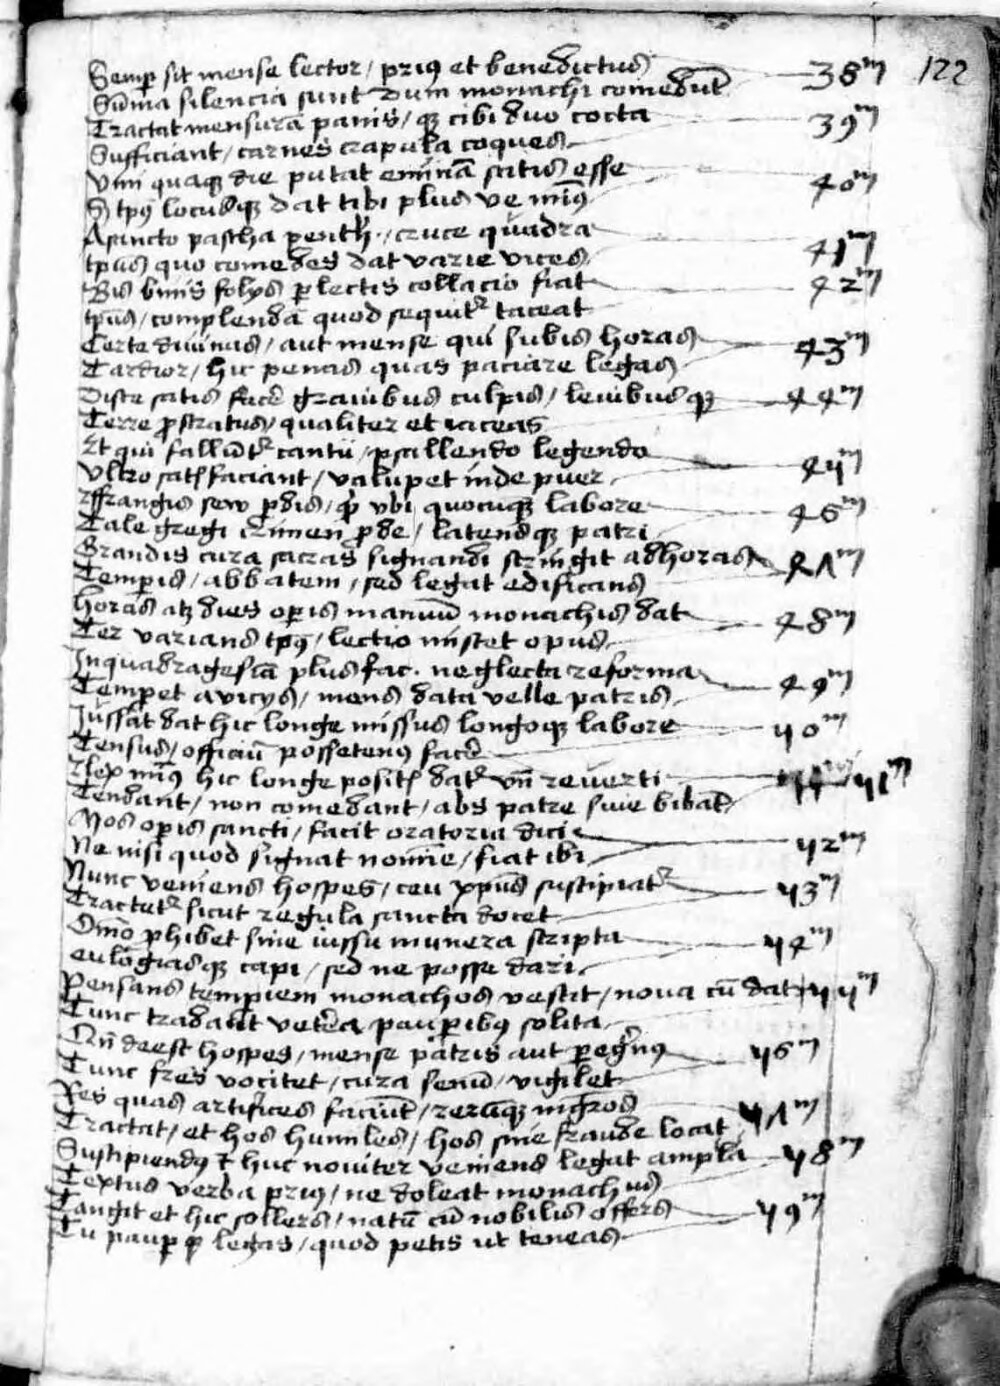 Semp sit mense lector / prius et benedictus 38m 122
Summa silencia sunt dum monachi comedunt
Tractat mensuram panis / que cibi duo cocta 39m
Sufficiant / carnes crapula coques
Uini quaque die putat eminam satis esse 40m
Si tpus locusque dat tibi plus ve minus
A sancto pascha / cruce quadra 41m
tpus quo comedes dat varie vices
Bis binis folys plectis collacio fiat 42m
tpus / complendam quod sequitur taceat
Certe divinas / aut mense qui subis horas 43m
Tardior / hic penas quas paciare legas
Disce satis facere gravibus culpis / levibusque 44m
Terre prostratus / qualiter et iaceas
Et qui falluntur cantu / psallendo legendo 45m
Ultro satisfaciant / vapulet inde puer
seu perdis / vbi quocumque labore 46m
Tale gregi crimen prode / latensque patri
Grandis cura sacras signandi stringit ad horas 47m
Temperis / abbatem / sed legat edificans
horas atque dies operis manuum monachis dat 48m
Ter varians tpus / lectio miscet opus
In quadragesima plus fac . neglecta reforma 49m
Temperet a vicys / mens data velle patris
Jussam dat hic longe missus longoque labore 50m
Tensus / officium posse tenus facere
Lex minus hic longe positis datur un reverti 51m
Tendant / non comedant / abs patre sive bibant
Nos operis sancti / facit oratoria dici 52m
Ne nisi quod signat nomine / fiat ibi
Nunc veniens hospes / ceu xpus suscipiatur 53m
Tractetur sicut regula sancta docet
Omnino prohibet sine iussu munera scripta 54m
eulogiasque capi / sed ne posse dari
Pensans tempiem monachos vestit / nova cum dat 55m
Tunc tradant vetera pauperibus solita
Cum deest hospes / mense patris aut peregrinus 56m
Tunc fres vocitet / cura senum / vigilet
Res quas artifices faciunt / rerumque 57m
Tractat / et hos humiles / hos sine fraude locat
Suscipiendus huc noviter veniens legat ampla 58m
Textus verba prius / ne doleat monachus
Tangit et hic sollers / natum cum nobilis offers 59m
Tu pauper legas / quod petis ut teneas